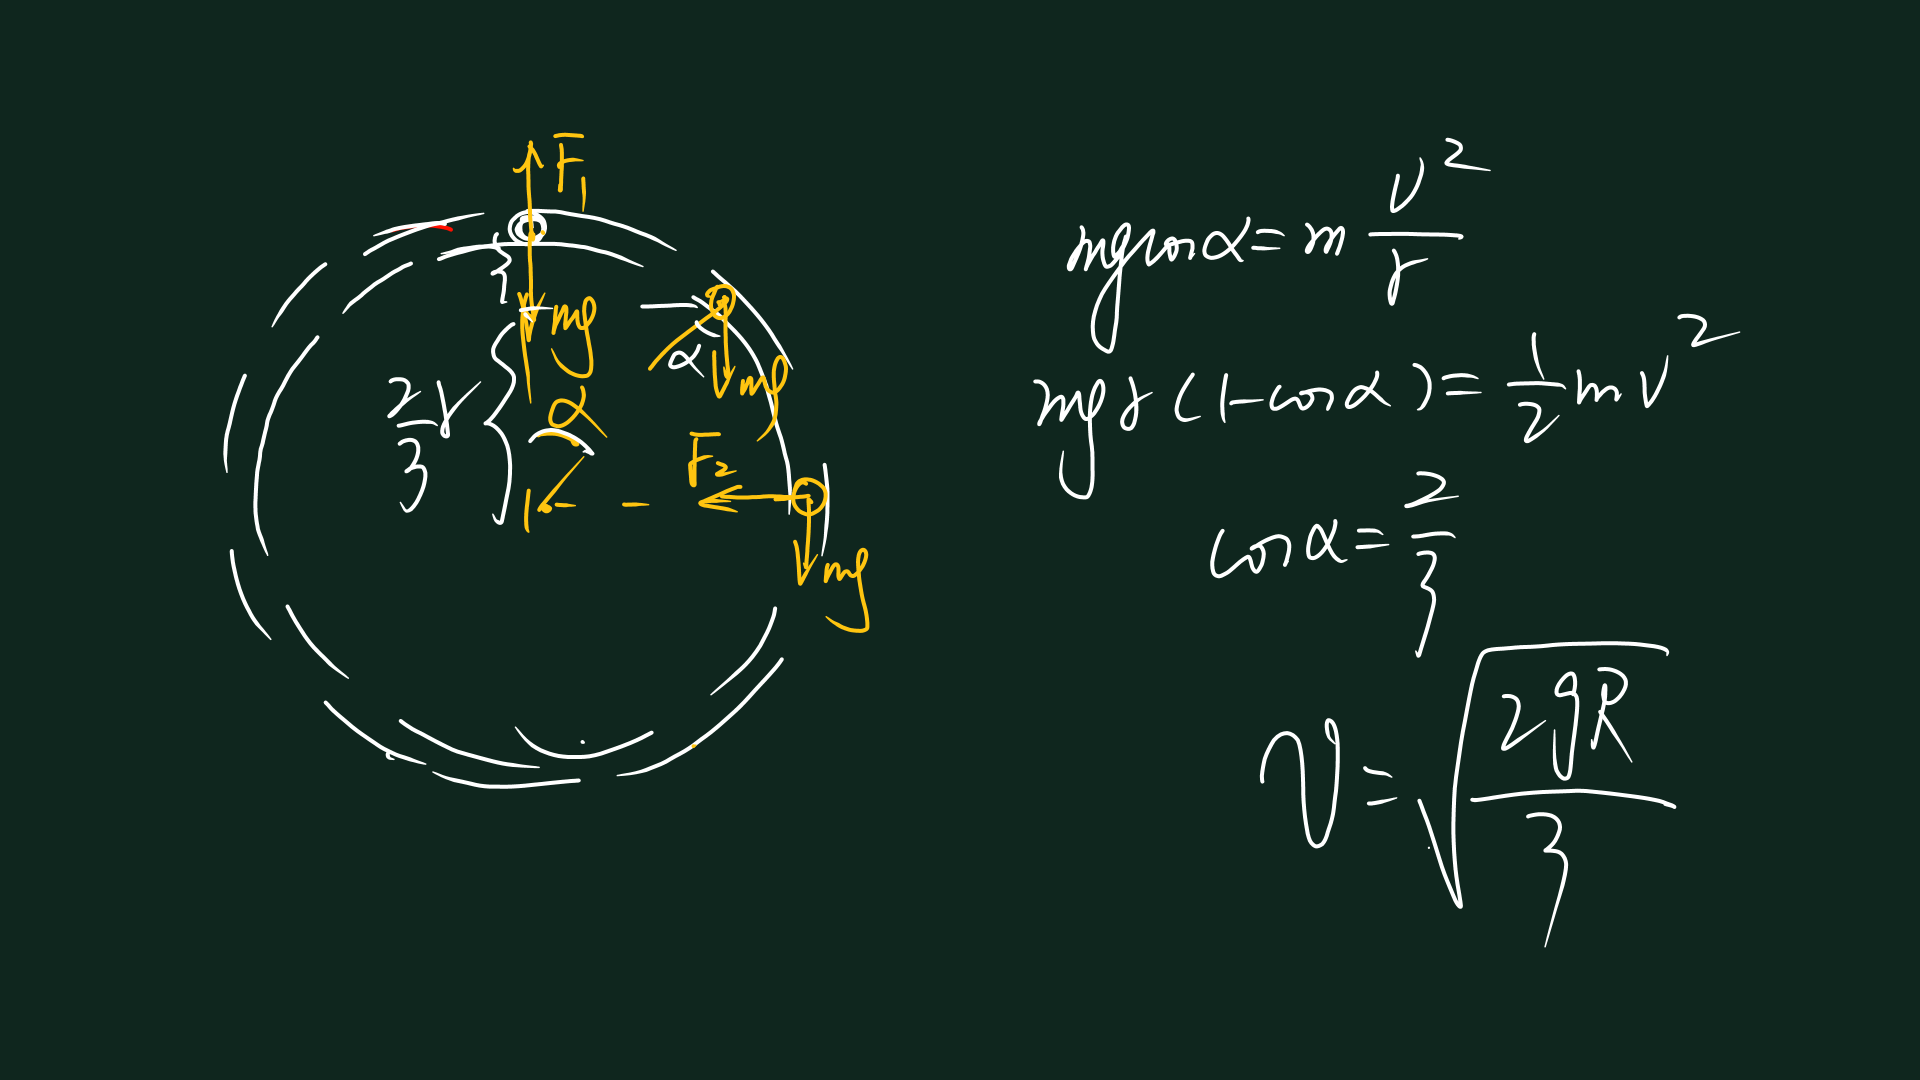 F₁
mg
α
mg
2/3 r
α
F₂
mg
mg cosα = m v²/r
mgr(1-cosα) = 1/2 mv²
cosα = 2/3
v = √(2gR/3)